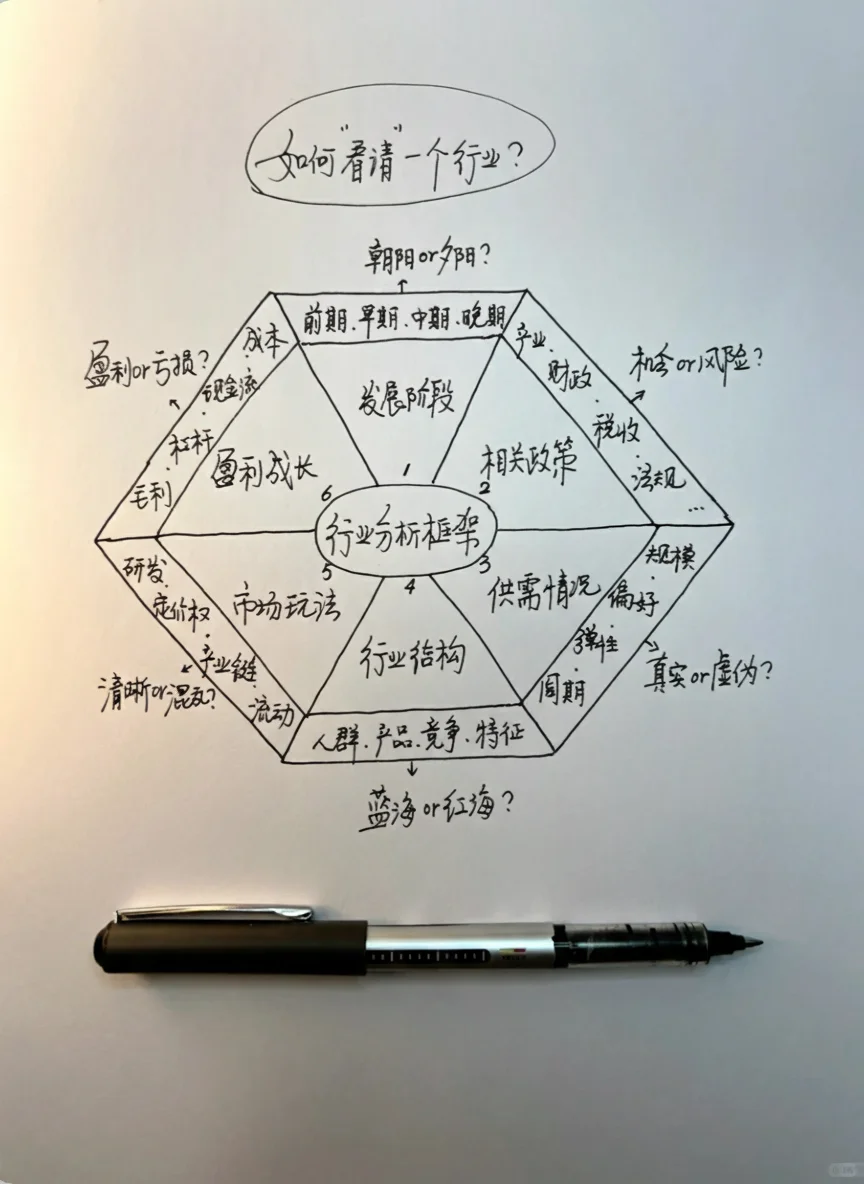 如何"看请"一个行业?
朝阳or夕阳?
前期、早期、中期、晚期
发展阶段
1
产业、财政、税收、法规...
机会or风险?
相关政策
2
行业分析框架
规模、偏好、弹性、周期
真实or虚伪?
供需情况
3
行业结构
4
人群、产品、竞争、特征
蓝海or红海?
市场玩法
5
研发、定价权、产业链、流动
清晰or混乱?
盈利成长
6
成本、现金流、杠杆、毛利
盈利or亏损?